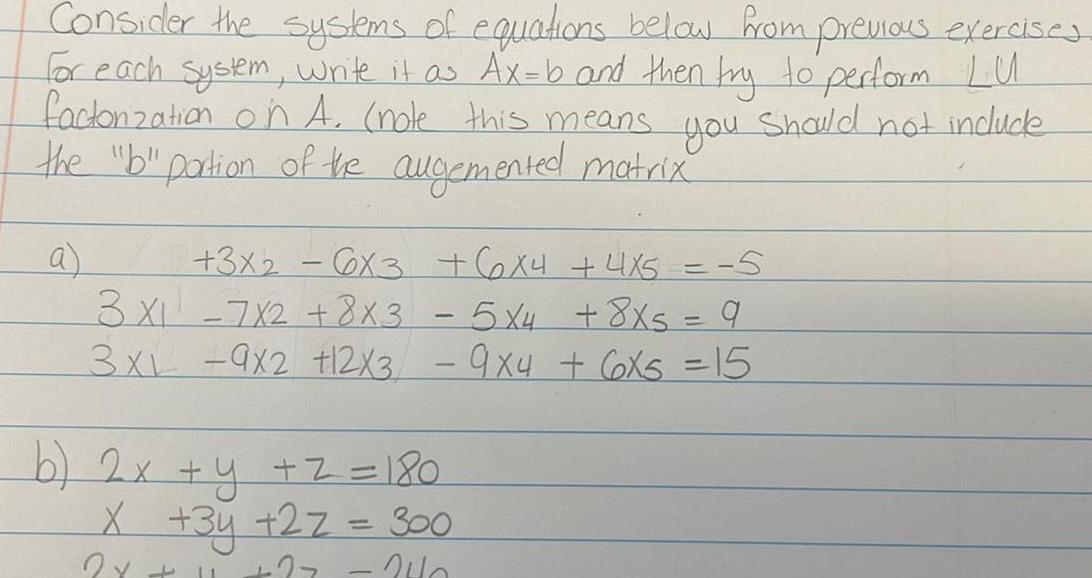 Consider the systems of equations below from previous exercises.
For each system, write it as Ax=b and then try to perform LU
factorization on A. (note this means you should not include
the "b" portion of the augemented matrix
a) +3x2 - 6x3 + 6x4 + 4x5 = -5
3x1 - 7x2 + 8x3 - 5x4 + 8x5 = 9
3x1 - 9x2 +12x3 - 9x4 + 6x5 = 15
b) 2x + y + z = 180
x + 3y + 2z = 300
2x + y + 2z = 240